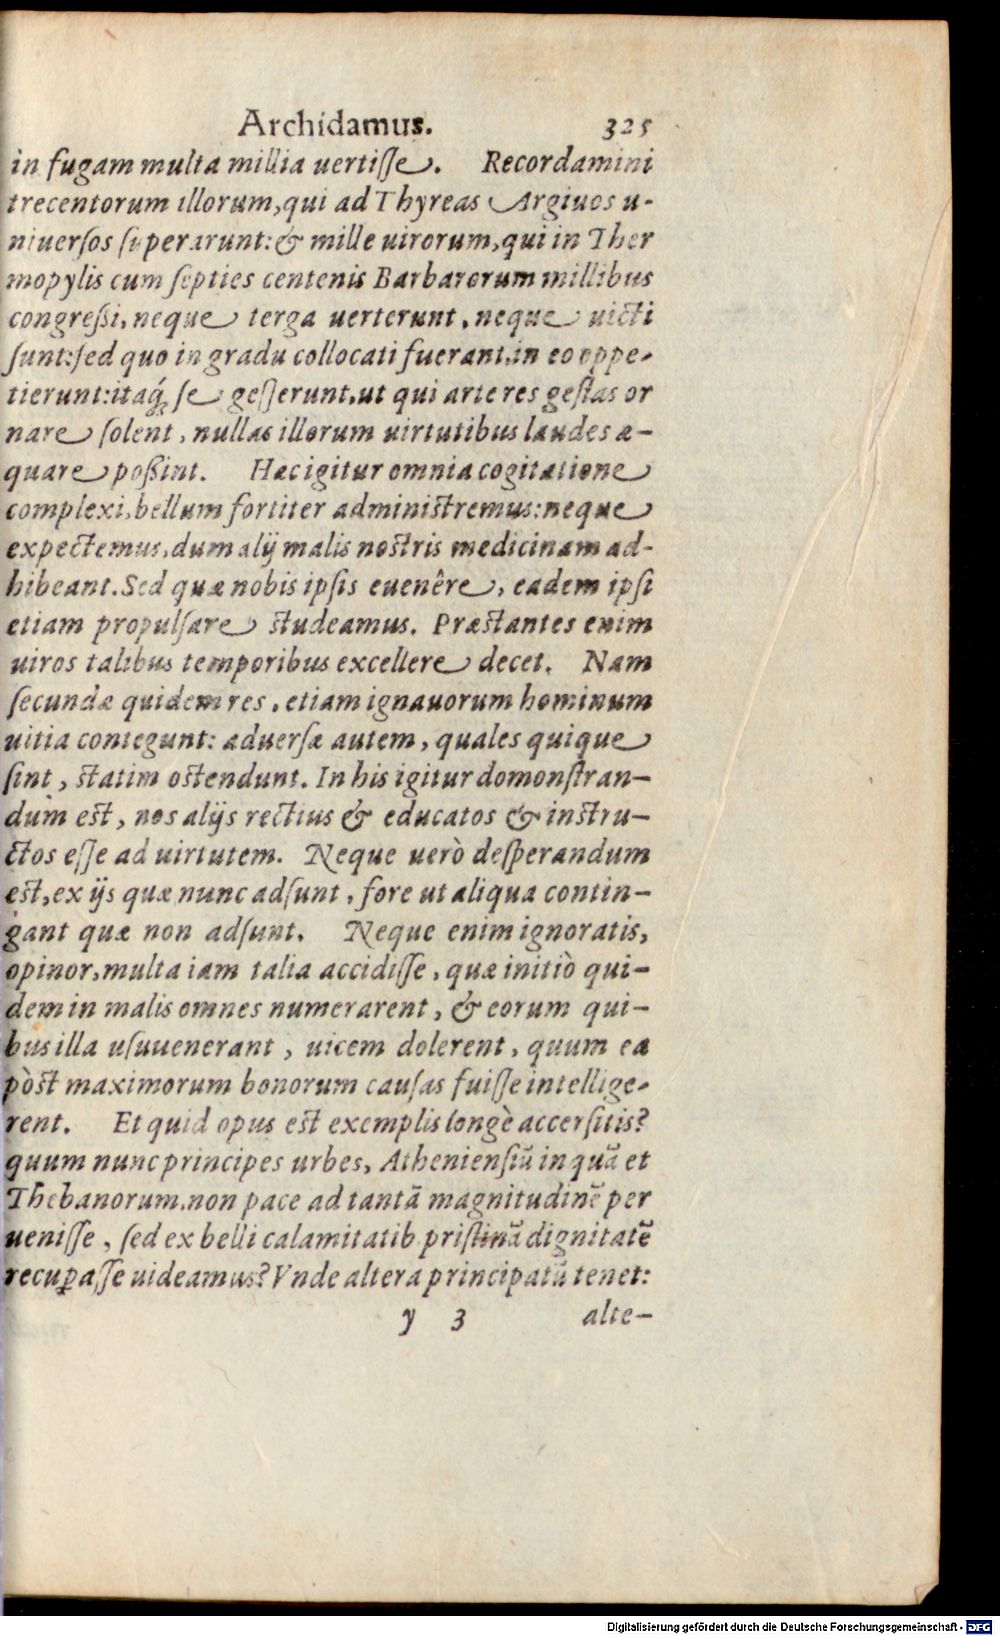 Archidamus. 325
in fugam multa millia uertiſſe. Recordamini
trecentorum illorum, qui ad Thyreas Argiuos u-
niuerſos ſuperarunt: & mille uirorum, qui in Ther
mopylis cum ſepties centenis Barbarorum millibus
congreßi, neque terga uerterunt, neque uicti
ſunt: ſed quo in gradu collocati fuerant, in eo oppe-
tierunt: itaq́ꝫ ſe geſſerunt, ut qui arte res geſtas or
nare ſolent, nullas illorum uirtutibus laudes æ-
quare poßint. Hæc igitur omnia cogitatione
complexi, bellum fortiter adminiſtremus: neque
expectemus, dum alij malis noſtris medicinam ad-
hibeant. Sed quæ nobis ipſis euenêre, eadem ipſi
etiam propulſare ſtudeamus. Præſtantes enim
uiros talibus temporibus excellere decet. Nam
ſecundæ quidem res, etiam ignauorum hominum
uitia contegunt: aduerſæ autem, quales quique
ſint, ſtatim oſtendunt. In his igitur domonſtran-
dum eſt, nos alijs rectius & educatos & inſtru-
ctos eſſe ad uirtutem. Neque uerò deſperandum
eſt, ex ijs quæ nunc adſunt, fore ut aliqua contin-
gant quæ non adſunt. Neque enim ignoratis,
opinor, multa iam talia accidiſſe, quæ initiò qui-
dem in malis omnes numerarent, & eorum qui-
bus illa uſuuenerant, uicem dolerent, quum ea
pòſt maximorum bonorum cauſas fuiſſe intellige-
rent. Et quid opus eſt exemplis longè accerſitis?
quum nunc principes urbes, Athenienſiũ inquã et
Thebanorum, non pace ad tantã magnitudinẽ per
ueniſſe, ſed ex belli calamitatib. priſtinã dignitatẽ
recuꝑaſſe uideamus? Vnde altera principatũ tenet:
y 3 alte-
Digitalisierung gefördert durch die Deutsche Forschungsgemeinschaft - DFG